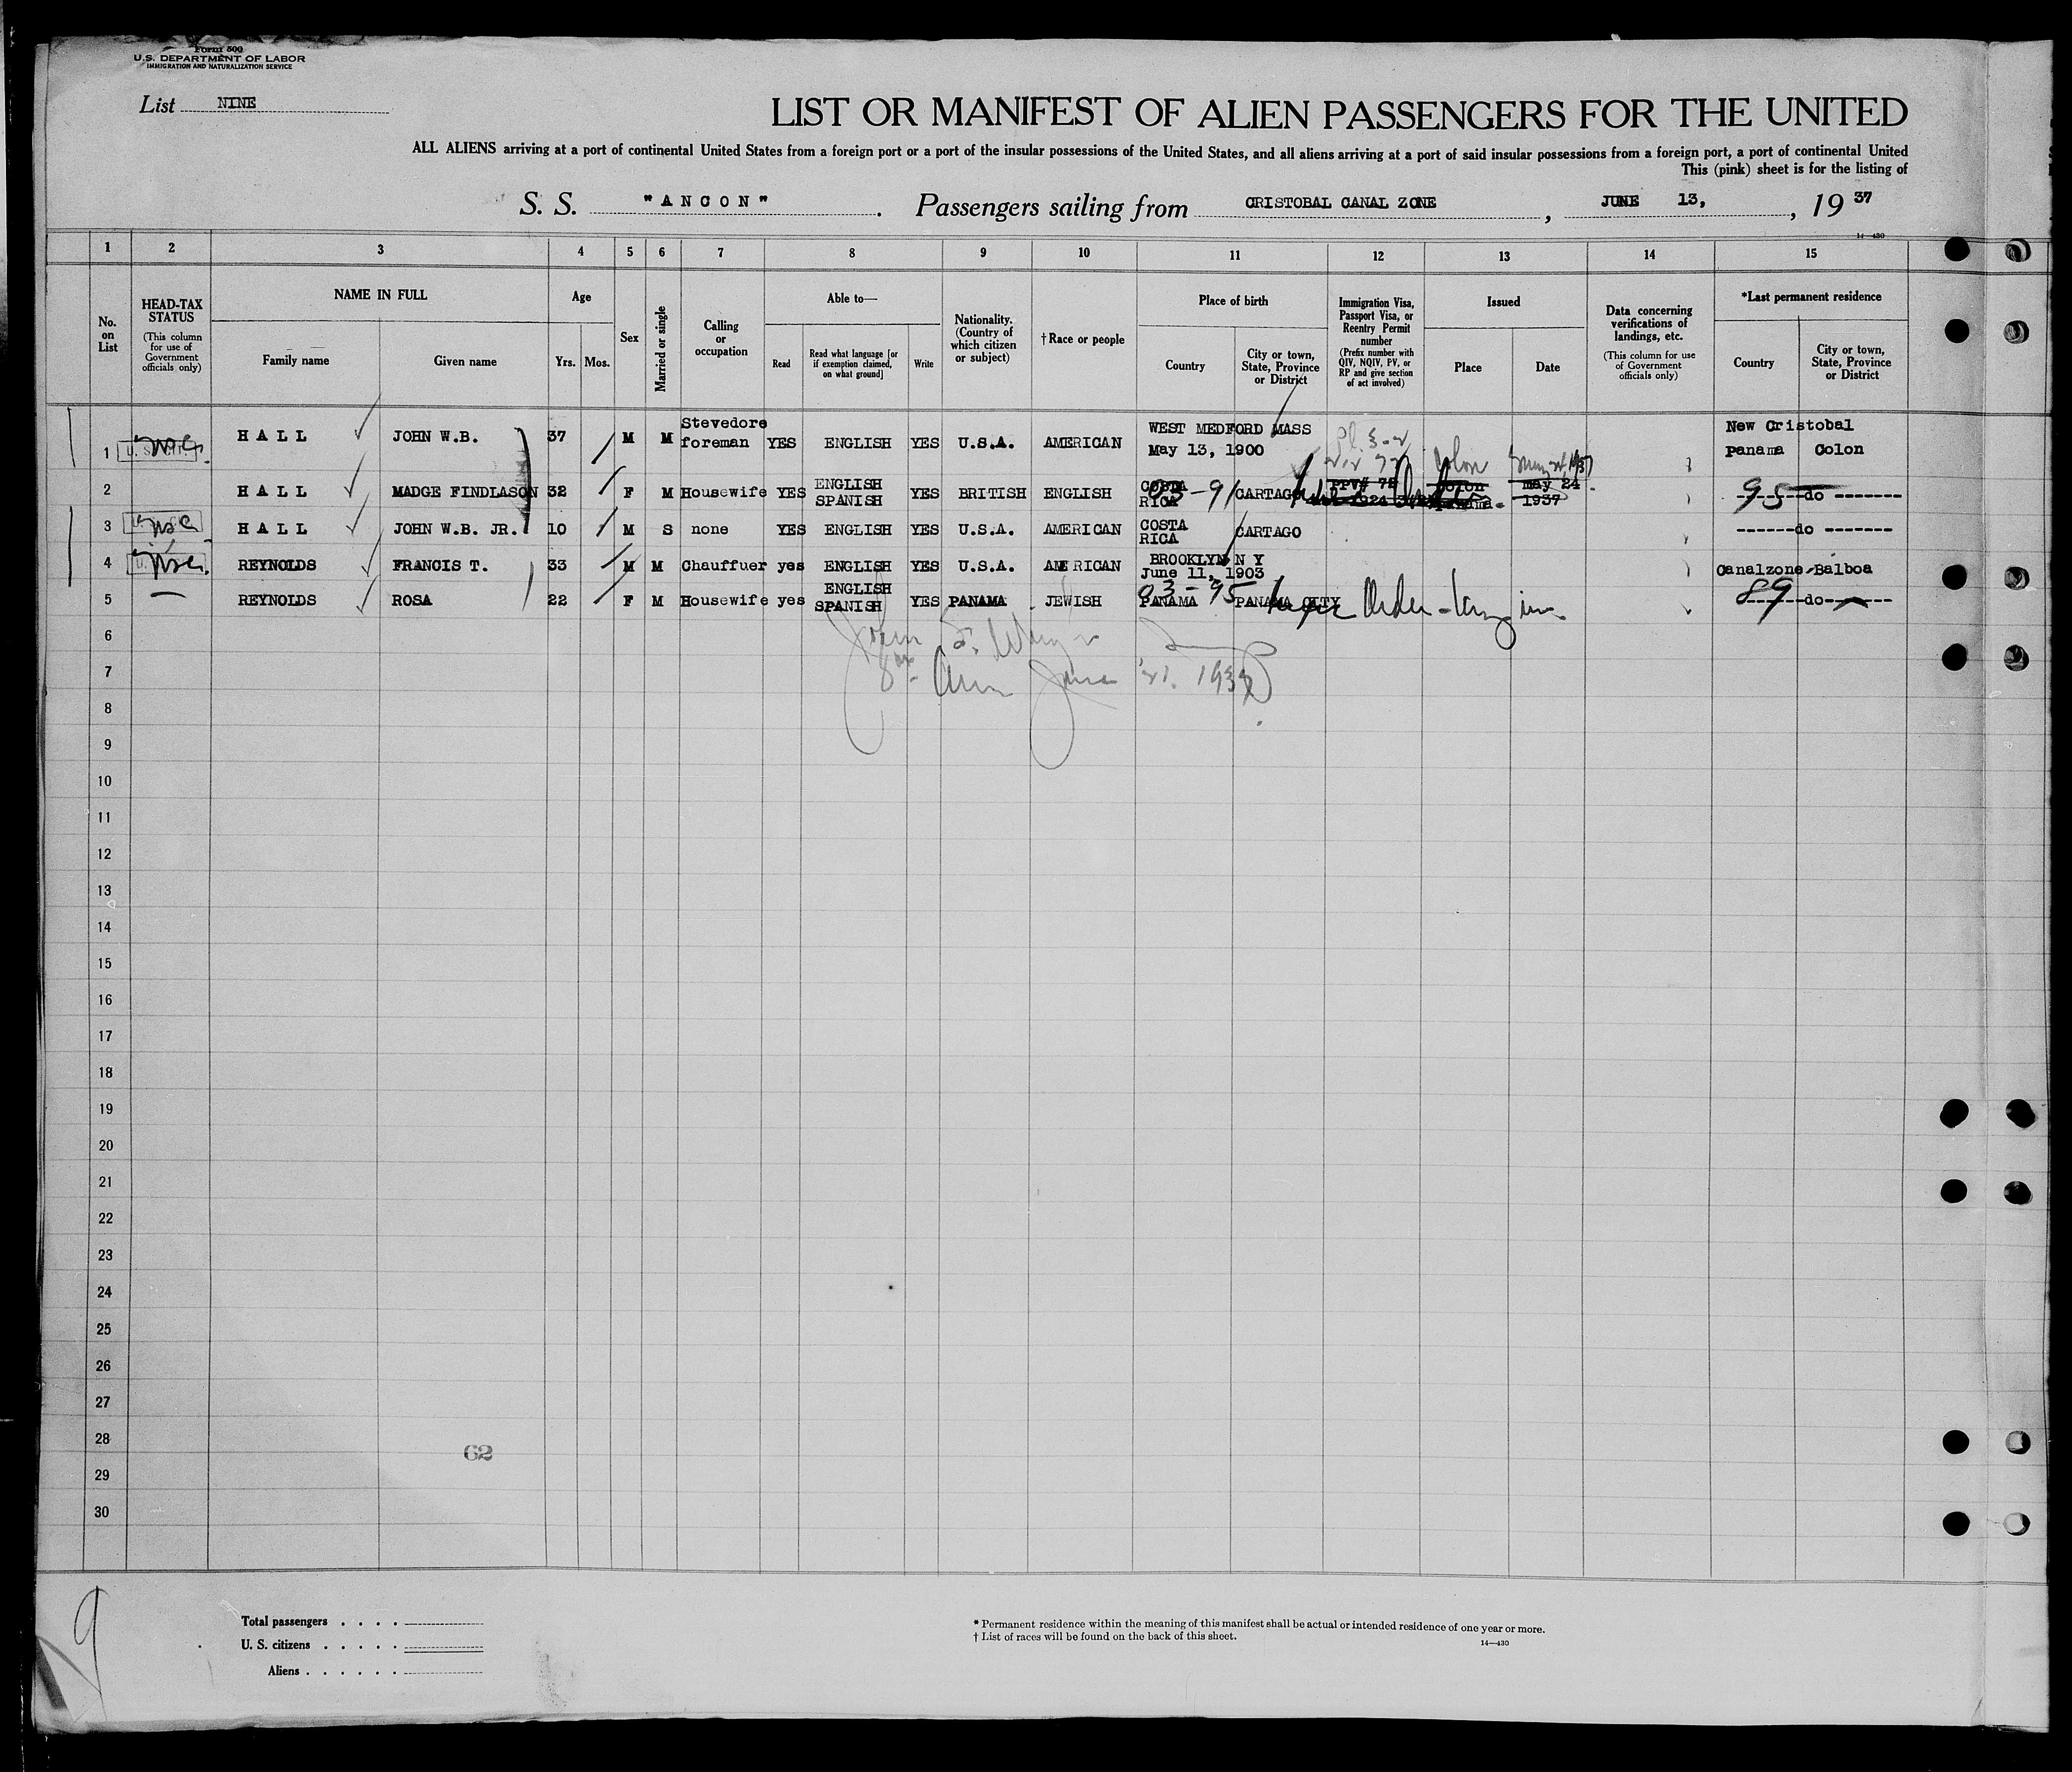 Form 500
U.S. DEPARTMENT OF LABOR
IMMIGRATION AND NATURALIZATION SERVICE
List NINE
LIST OR MANIFEST OF ALIEN PASSENGERS FOR THE UNITED
ALL ALIENS arriving at a port of continental United States from a foreign port or a port of the insular possessions of the United States, and all aliens arriving at a port of said insular possessions from a foreign port, a port of continental United
This (pink) sheet is for the listing of
S. S. "ANCON". Passengers sailing from CRISTOBAL CANAL ZONE, JUNE 13, 1937
14—430
1 2 3 4 5 6 7 8 9 10 11 12 13 14 15
No. on List
HEAD-TAX STATUS
(This column for use of Government officials only)
NAME IN FULL
Family name Given name
Age
Yrs. Mos.
Sex
Married or single
Calling or occupation
Able to—
Read
Read what language [or if exemption claimed, on what ground]
Write
Nationality. (Country of which citizen or subject)
† Race or people
Place of birth
Country
City or town, State, Province or District
Immigration Visa, Passport Visa, or Reentry Permit number
(Prefix number with QIV, NQIV, PV, or RP and give section of act involved)
Issued
Place Date
Data concerning verifications of landings, etc.
(This column for use of Government officials only)
*Last permanent residence
Country
City or town, State, Province or District
1 HALL JOHN W.B. 37 M M Stevedore foreman YES ENGLISH YES U.S.A. AMERICAN WEST MEDFORD MASS May 13, 1900 New Cristobal Panama Colon
2 HALL MADGE FINDLASON 32 F M Housewife YES ENGLISH SPANISH YES BRITISH ENGLISH COSTA RICA 03-91 CARTAGO PPV# 72 Colon May 24 1937 95 ------do-------
3 HALL JOHN W.B. JR. 10 M S none YES ENGLISH YES U.S.A. AMERICAN COSTA RICA CARTAGO ------do-------
4 REYNOLDS FRANCIS T. 33 M M Chauffuer yes ENGLISH YES U.S.A. AMERICAN BROOKLYN N Y June 11, 1903 Canalzone-Balboa
5 REYNOLDS ROSA 22 F M Housewife yes ENGLISH SPANISH YES PANAMA JEWISH 03-95 PANAMA PANAMA CITY Order 89 ------do-------
6
7
8
9
10
11
12
13
14
15
16
17
18
19
20
21
22
23
24
25
26
27
28
62
29
30
9
Total passengers . . . .
U. S. citizens . . . . .
Aliens . . . . . .
* Permanent residence within the meaning of this manifest shall be actual or intended residence of one year or more.
† List of races will be found on the back of this sheet.
14—430